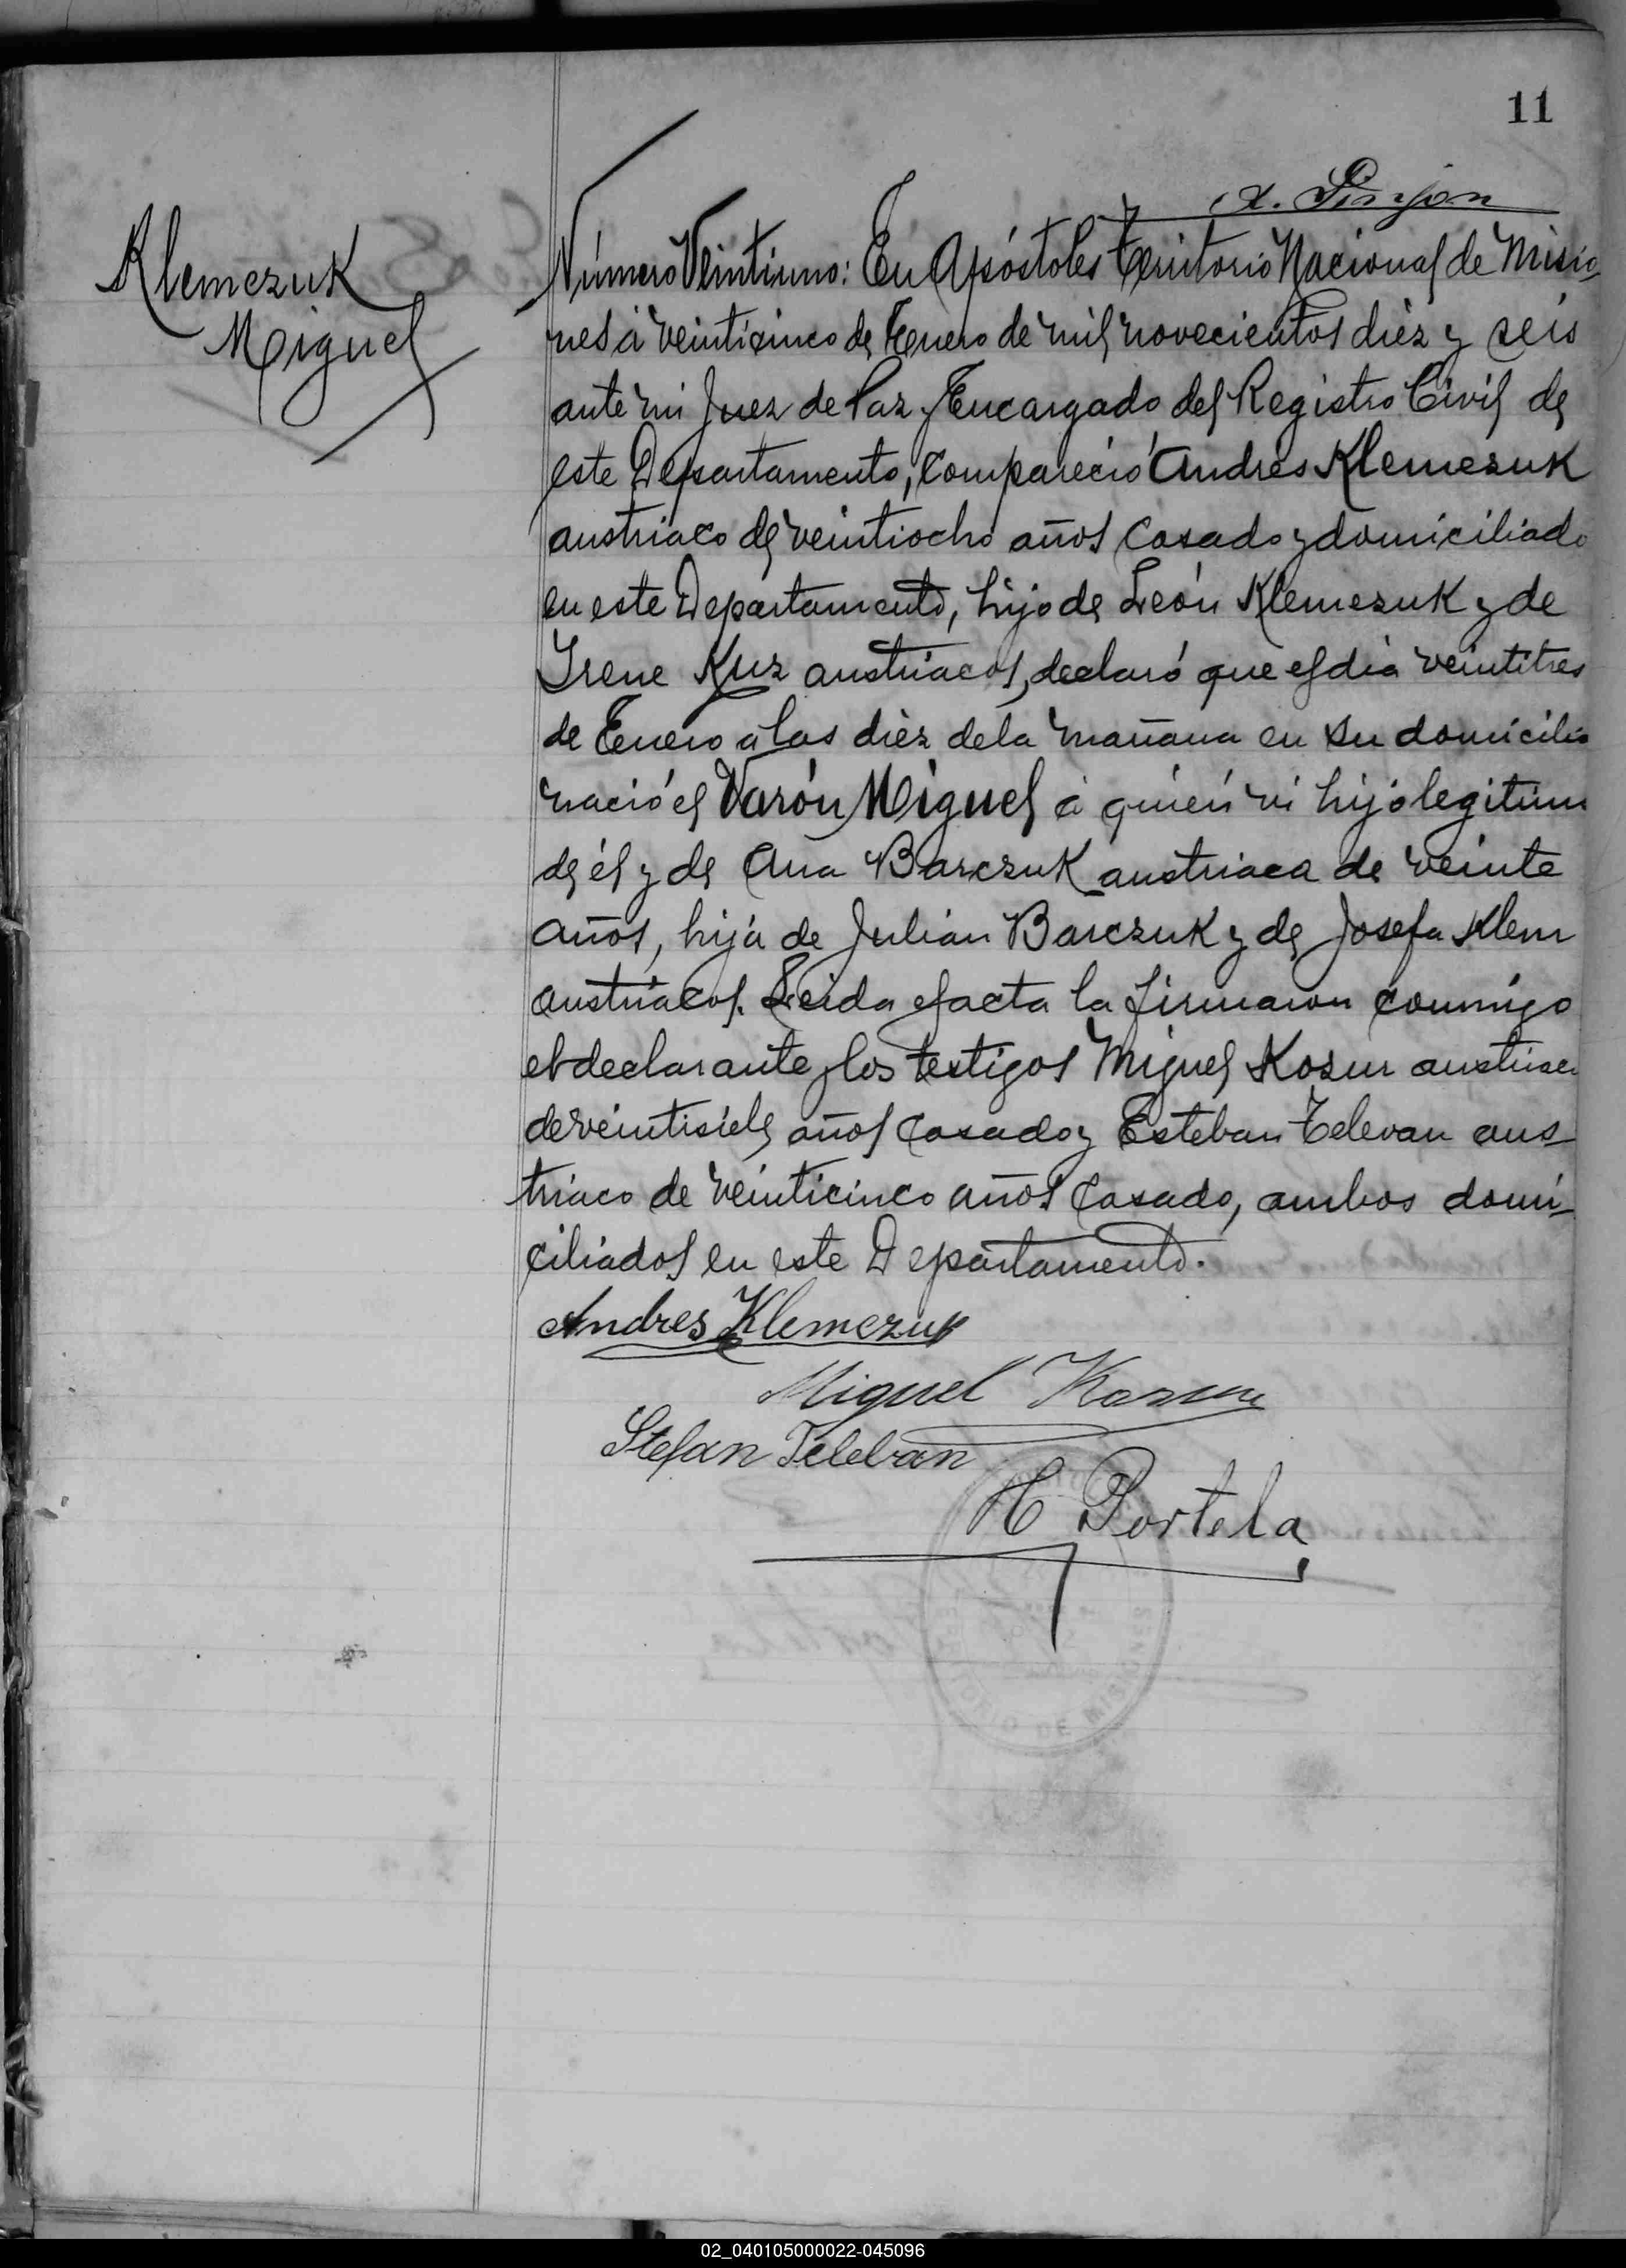 11
Klemczuk
Miguel
Número Veintiuno: En Apóstoles Territorio Nacional de Misio
nes á veinticinco de Enero de mil novecientos diéz y seis
ante mi Juez de Paz y Encargado del Registro Civil de
este Departamento, compareció Andrés Klemczuk
austriaco de veintiocho años casado y domiciliado
en este Departamento, hijo de León Klemczuk y de
Irene Kuz austriacos, declaró que el dia veintitres
de Enero a las diéz de la mañana en su domicilio
nació el Varón Miguel á quién vi hijo legitimo
de él y de Ana Barczuk austriaca de veinte
años, hija de Julián Barczuk y de Josefa Klem
austriacos. Leida el acta la firmaron conmigo
el declarante y los testigos Miguel Kozur austriaco
de veintisiete años casado y Esteban Televan aus-
triaco de veinticinco años casado, ambos domi-
ciliados en este Departamento.
Andres Klemczuk
Miguel
Stefan Teleban
H Portela
TORIO DE MISIONES
02_040105000022-045096